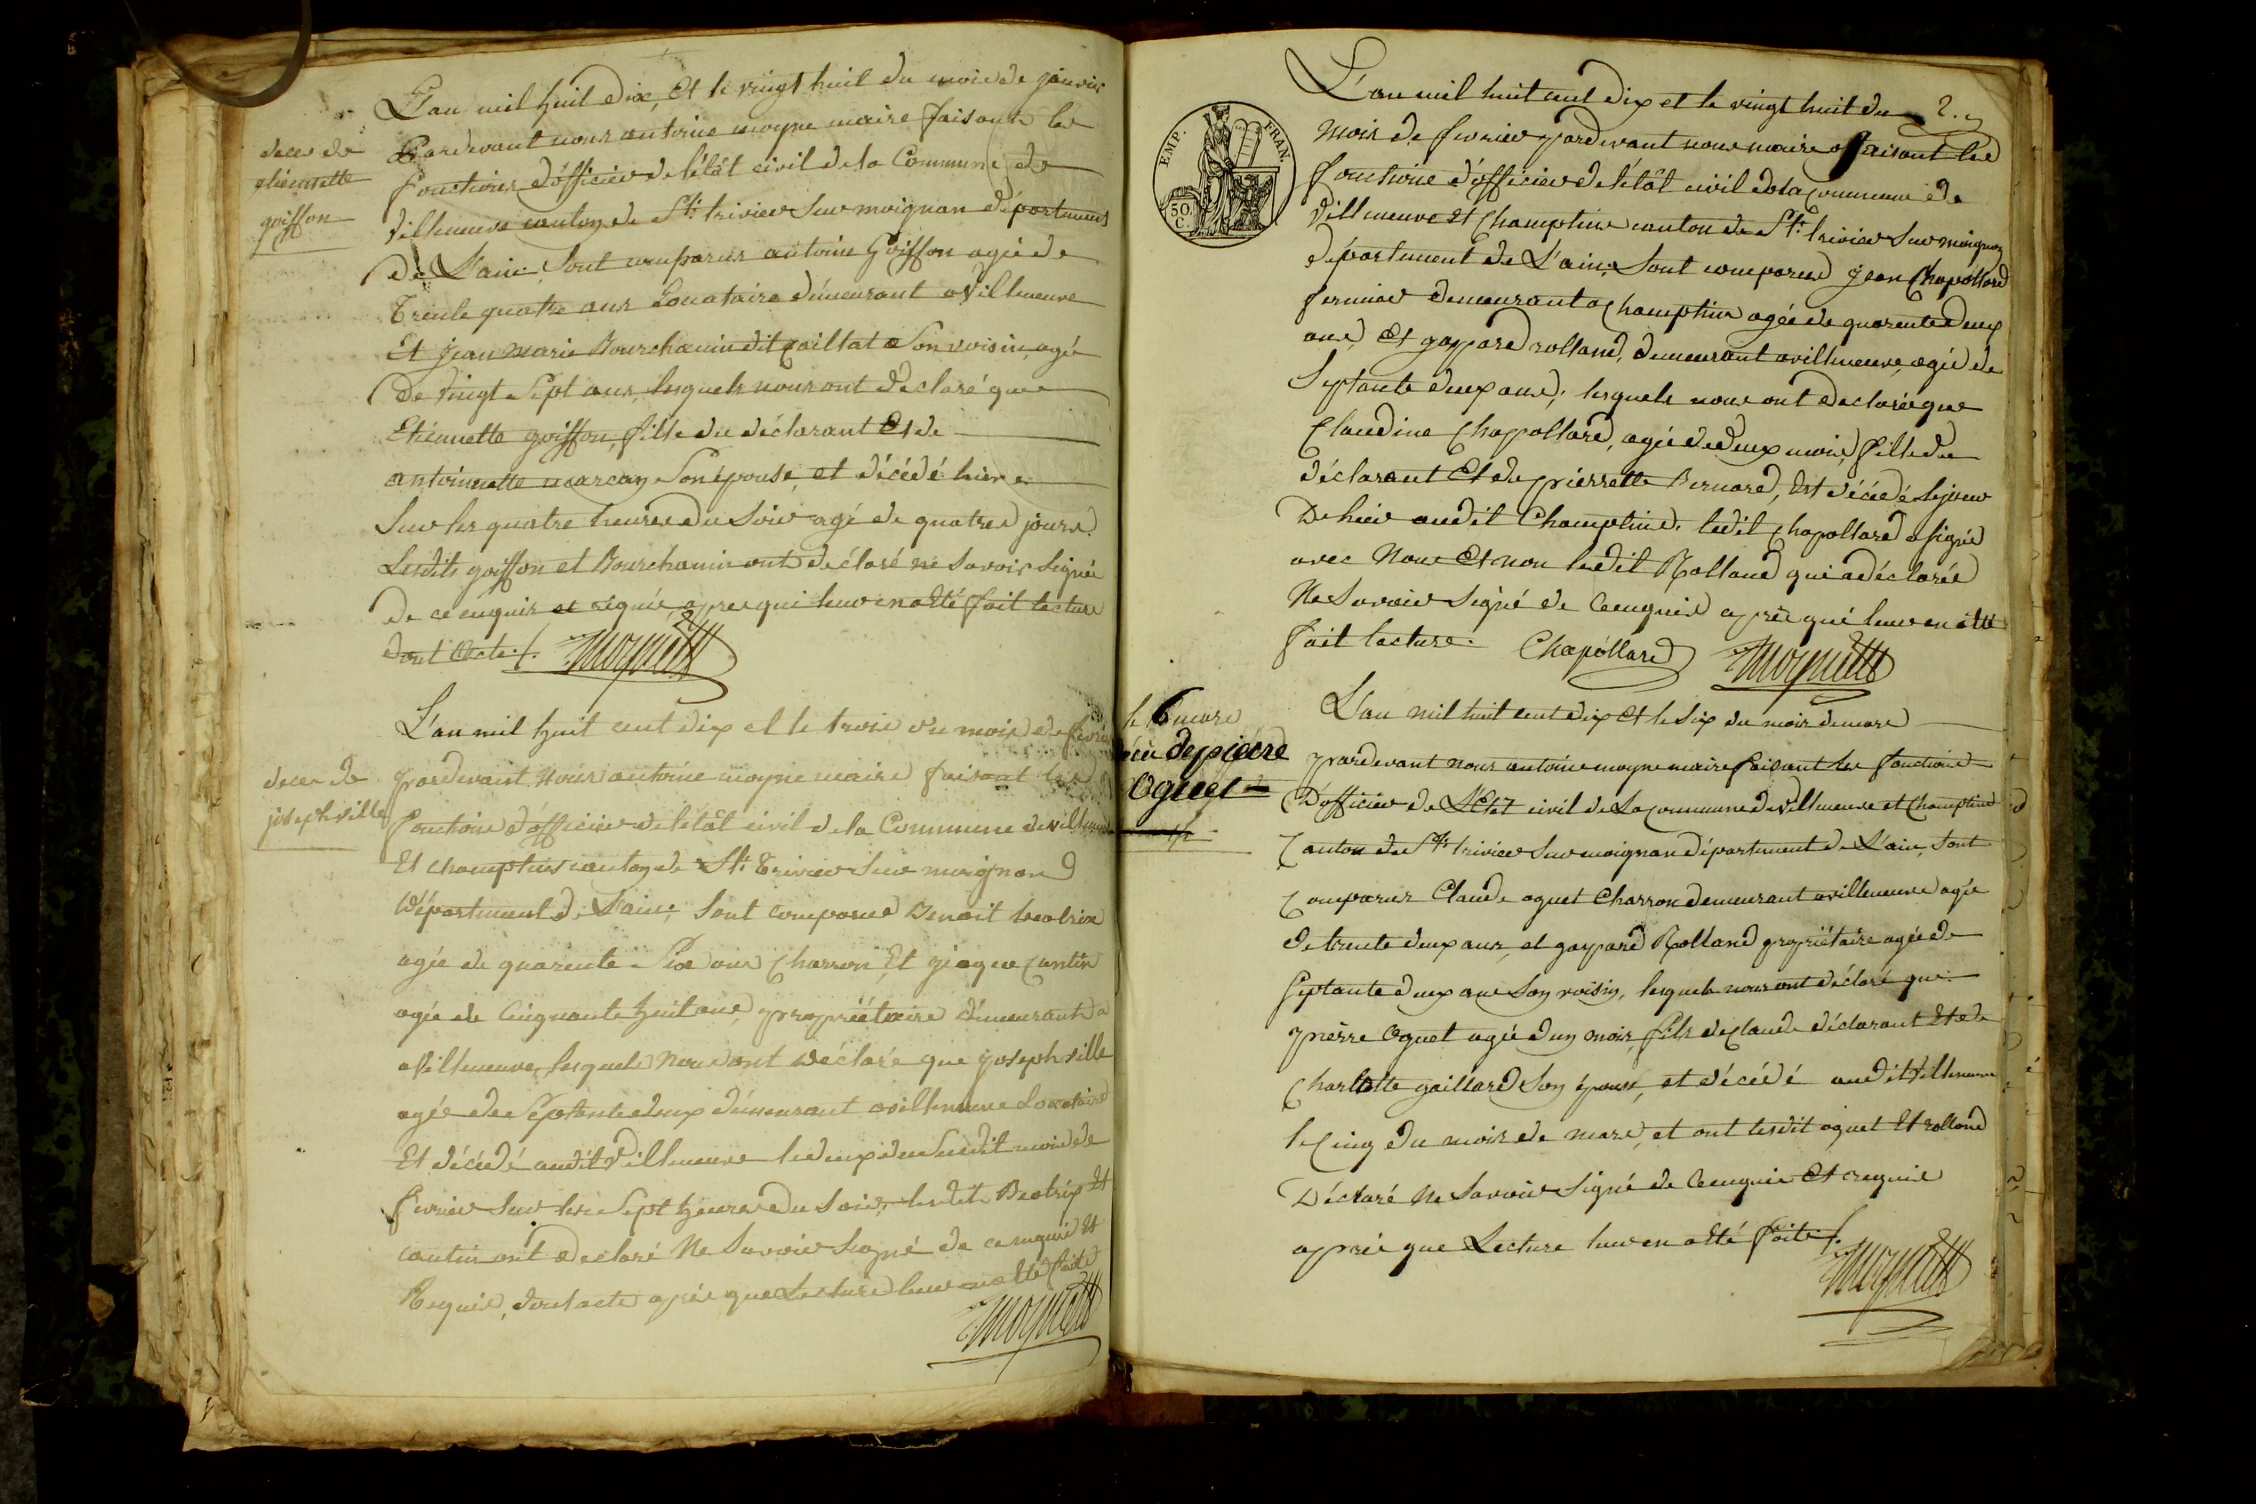 L'an mil huit dix, Et le vingt huit du mois de janvier
Pardevant nous antoine moyne maire faisant les
deces de
etiennette
goiffon
fonctions d'officier de l'état civil de la Commune de
villeneuve canton de St. trivier Sur moignan département
de L'ain, Sont comparus antoine Goiffon agée de
Trente quatre ans Locataire demeurant a Villeneuve
Et jean marie Bourchanin dit Caillat Son voisin, agée
De vingt Sept ans, lesquels nous ont déclaré que
Etiennette goiffon, fille du déclarant Et de
antoinette Son épouse, et décédé hier
Sur les quatre heures du Soir agé de quatre jours.
Lesdits goiffon et Bourchanin ont déclaré ne Savoir Signer
De ce enquis et réquis, apres qui leur en a Eté fait lecture
dont Acte ./. Moyne
L'an mil huit cent dix et le trois du mois de fevrier
deces de
joseph ville
pardevant Nous antoine moyne maire faisant les
fonctions d'officier de l'état civil de la Commune de villeneuve
Et Champtins canton de St. Trivier Sur moignand
Département de L'ain, Sont comparus Benoit beatrix
agée de quarente Six ans Charron, Et jaque Cantin
agée de Cinquante huit ans, propriétaire démeurant a
a Villeneuve, lesquels Nous ont declaré que joseph ville
agée de Septente deux démeurant a villeneuve Locataire
Et décédé audit Villeneuve le deux du Susdit mois de
fevrier Sur les Sept heures du Soir, lesdits Beatrix Et
cantin ont declaré Ne Savoir Signé de ce enquis Et
Requis, dont acte après que Lecture leur en a Eté faite
Moyne
2.
EMP. FRAN.
50.
C.
L'an mil huit cent dix et le vingt huit du
Mois de fevrier pardevant nous maire faisant les
fonctions d'officier de l'état civil de la Commune de
Villeneuve et Champtins canton de St. trivier Sur moignan
département de L'ain, Sont comparus jean Chapollard
fermier demeurant a Champtins agée de quarente deux
ans, Et gaspard rolland, demeurant a villeneuve, agée de
Septante deux ans; lesquels nous ont declarée que
Claudine Chapollard, agée de deux mois, fille du
déclarant Et de pierrette Bernard, Est décédé le jour
De hier audit Champtins. ledit Chapollard a Signé
avec Nous Et non ledit Rolland qui a déclarée
Ne Savoir Signé de Ce enquis après qué leur en a Eté
fait lecture. Chapóllard Moyne
le 6 mars
de pierre
Oguet
L'an mil huit cent dix Et le Six du mois de mars
pardevant nous antoine moyne maire faisant les fonctions
D'officier de L'Etat civil de La Commune de villeneuve et Champtins
Canton de St. trivier Sur moignan département de L'ain, Sont
Comparus Claude oguet Charron demeurant a villeneuve agée
de trente deux ans, et gaspard Rolland propriétaire agée de
Septante deux ans Son voisin, lesquels nous ont déclaré que
pierre Oguet agée d'un mois, fils de Claude déclarant Et de
Charlotte gaillard Son épouse, et décédé audit Villeneuve
le Cinq du mois de mars, et ont lesdit oguet Et rolland
Déclaré Ne Savoir Signé de Ce enquis Et requis
après que Lecture leur en a Eté faite ./.
Moyne